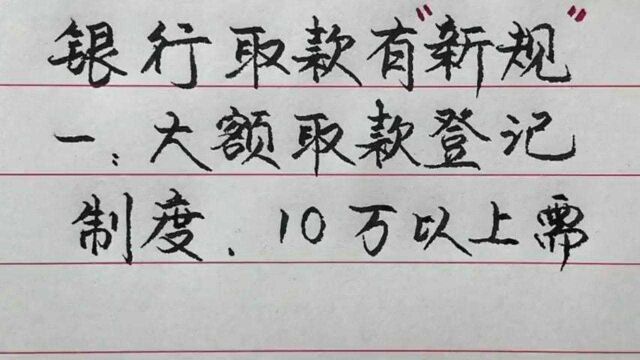 银行取款有"新规"
一:大额取款登记
制度、10万以上需